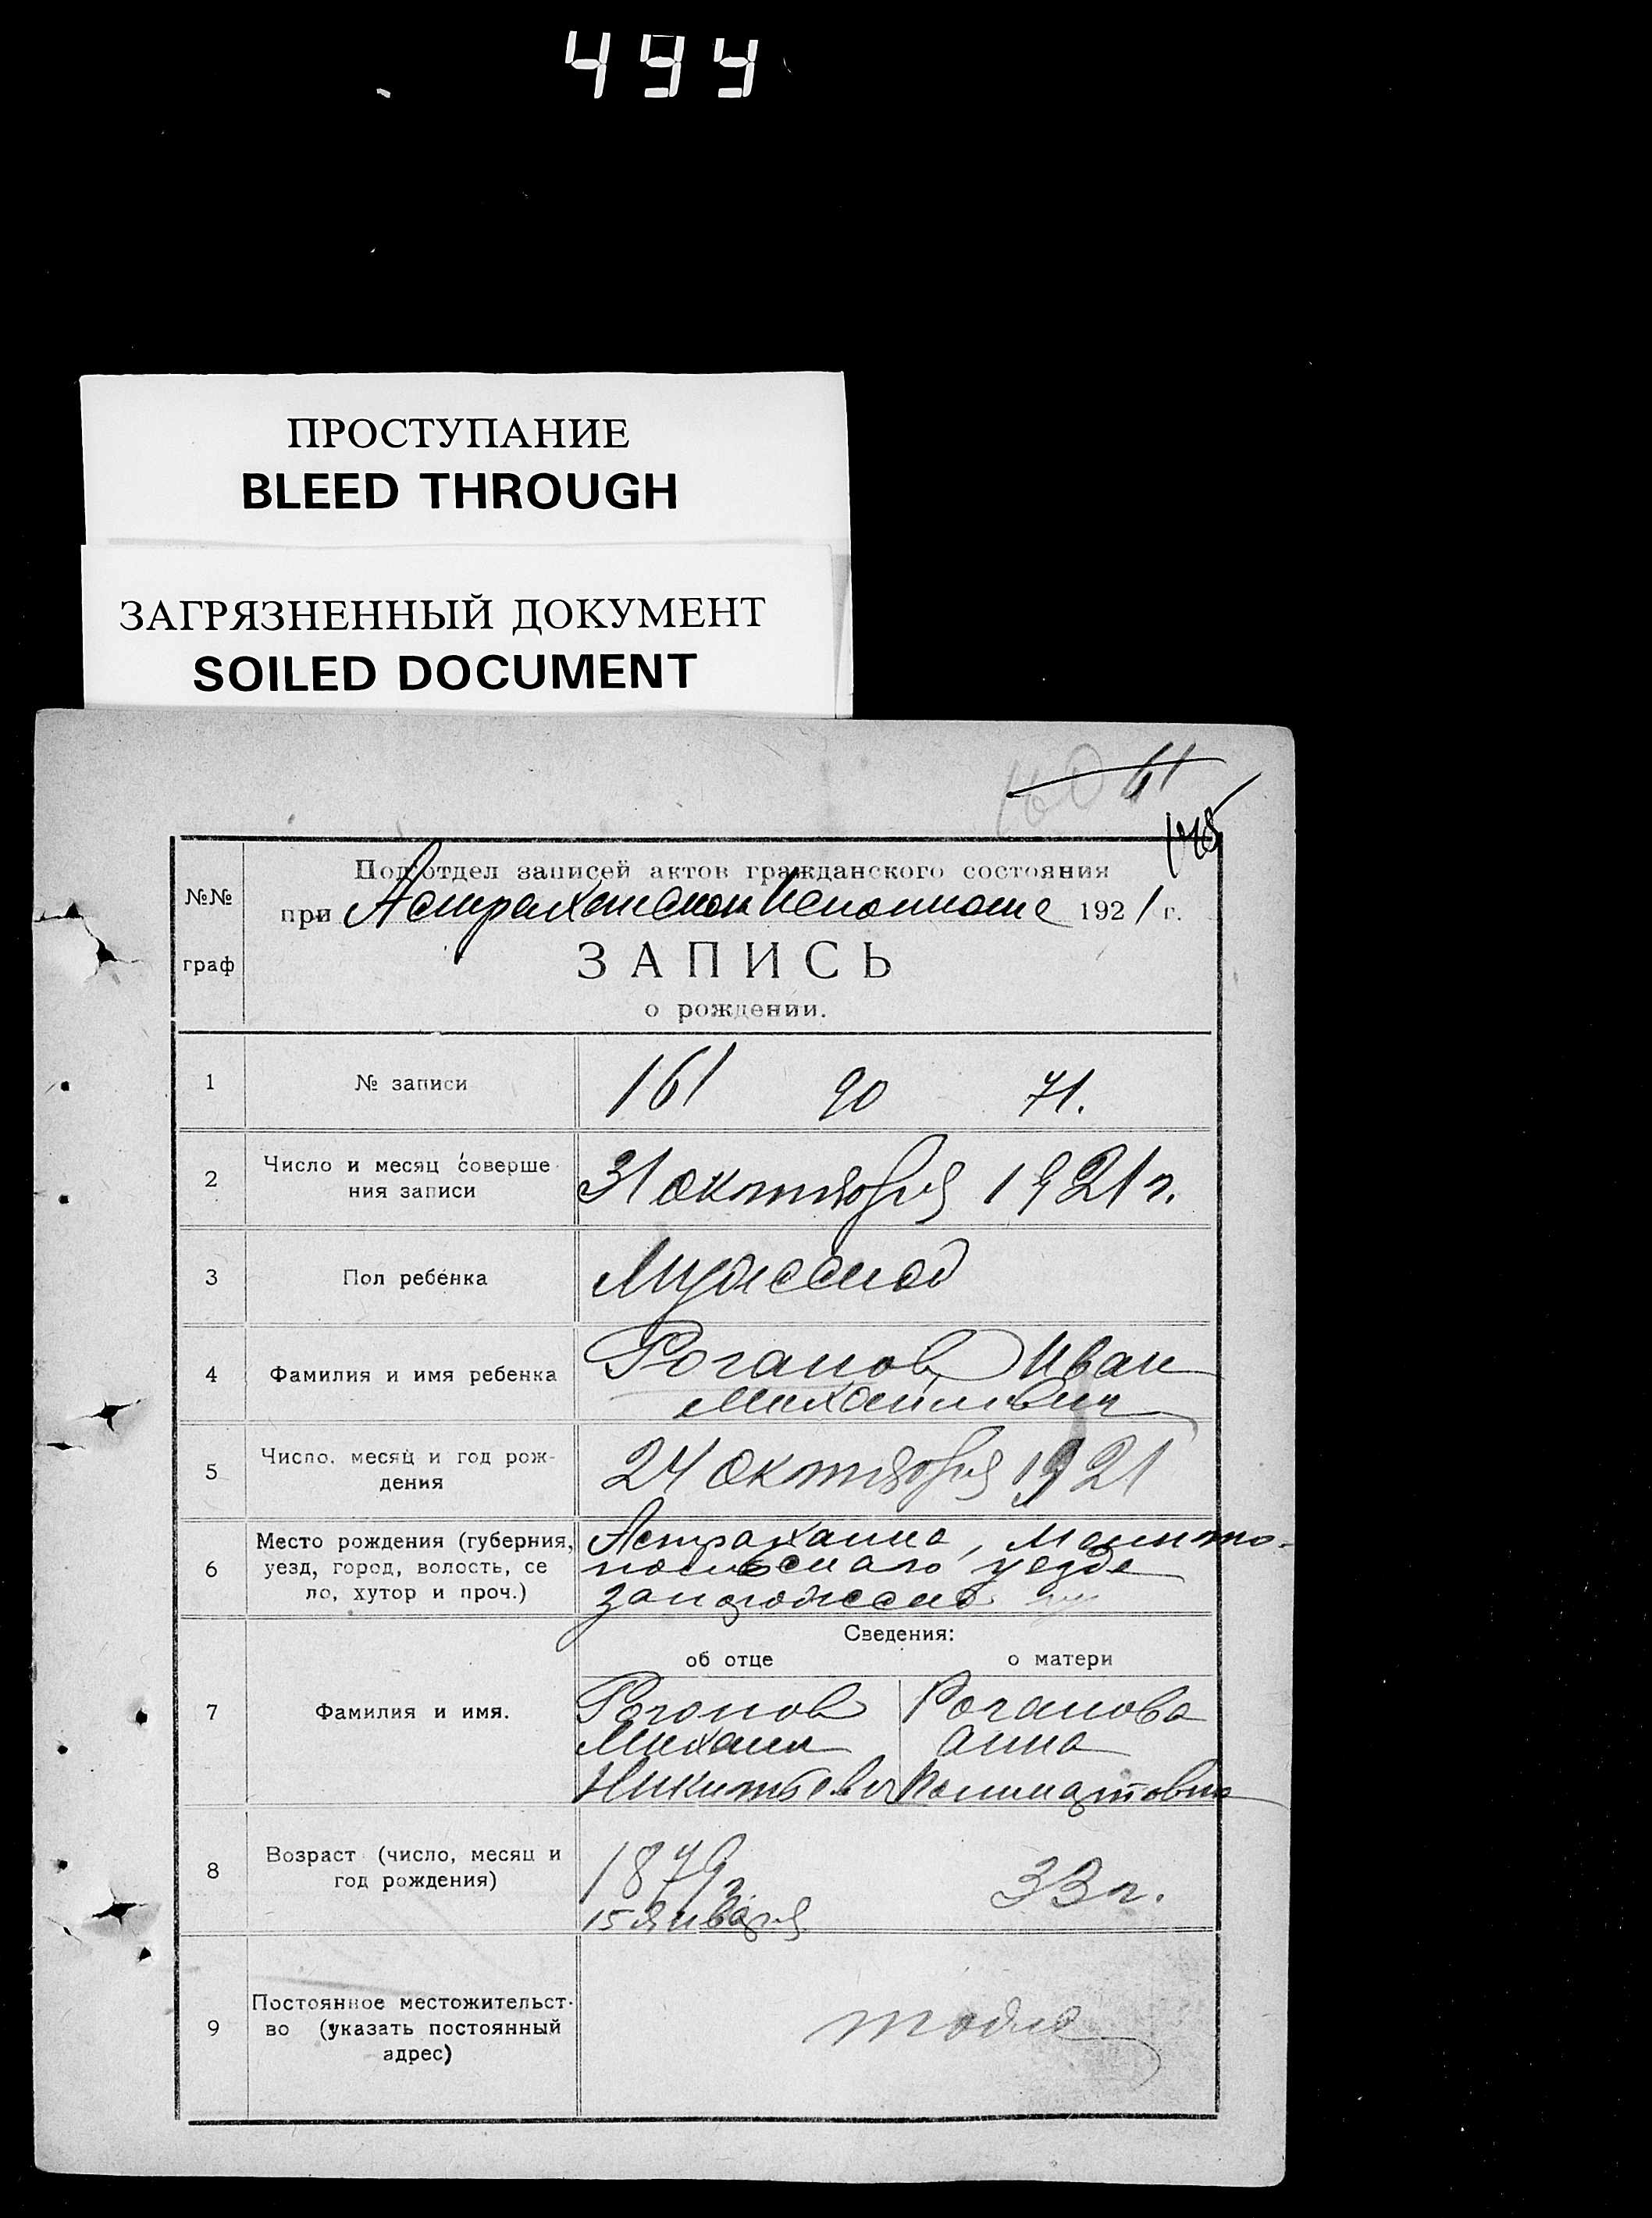 499
ПРОСТУПАНИЕ
BLEED THROUGH
ЗАГРЯЗНЕННЫЙ ДОКУМЕНТ
SOILED DOCUMENT
160 61
№№
граф
Подотдел записей актов гражданского состояния
при Астраханском Исполкоме 1921 г.
ЗАПИСЬ
о рождении.
1 № записи 161 90 71.
2 Число и месяц соверше
ния записи 31 октября 1921 г.
3 Пол ребенка Мужской
4 Фамилия и имя ребенка Роганов Иван
Михайлович
5 Число, месяц и год рож-
дения 24 октября 1921
6 Место рождения (губерния, Астраханка, Мелито-
уезд, город, волость, се польского уезда
ло, хутор и проч.)
Сведения:
об отце о матери
7 Фамилия и имя. Роганов Роганова
Михаил Анна
Никитьевич
8 Возраст (число, месяц и
год рождения) 1879 г. 33 г.
15 января
9 Постоянное местожительст-
во (указать постоянный
адрес) тоже